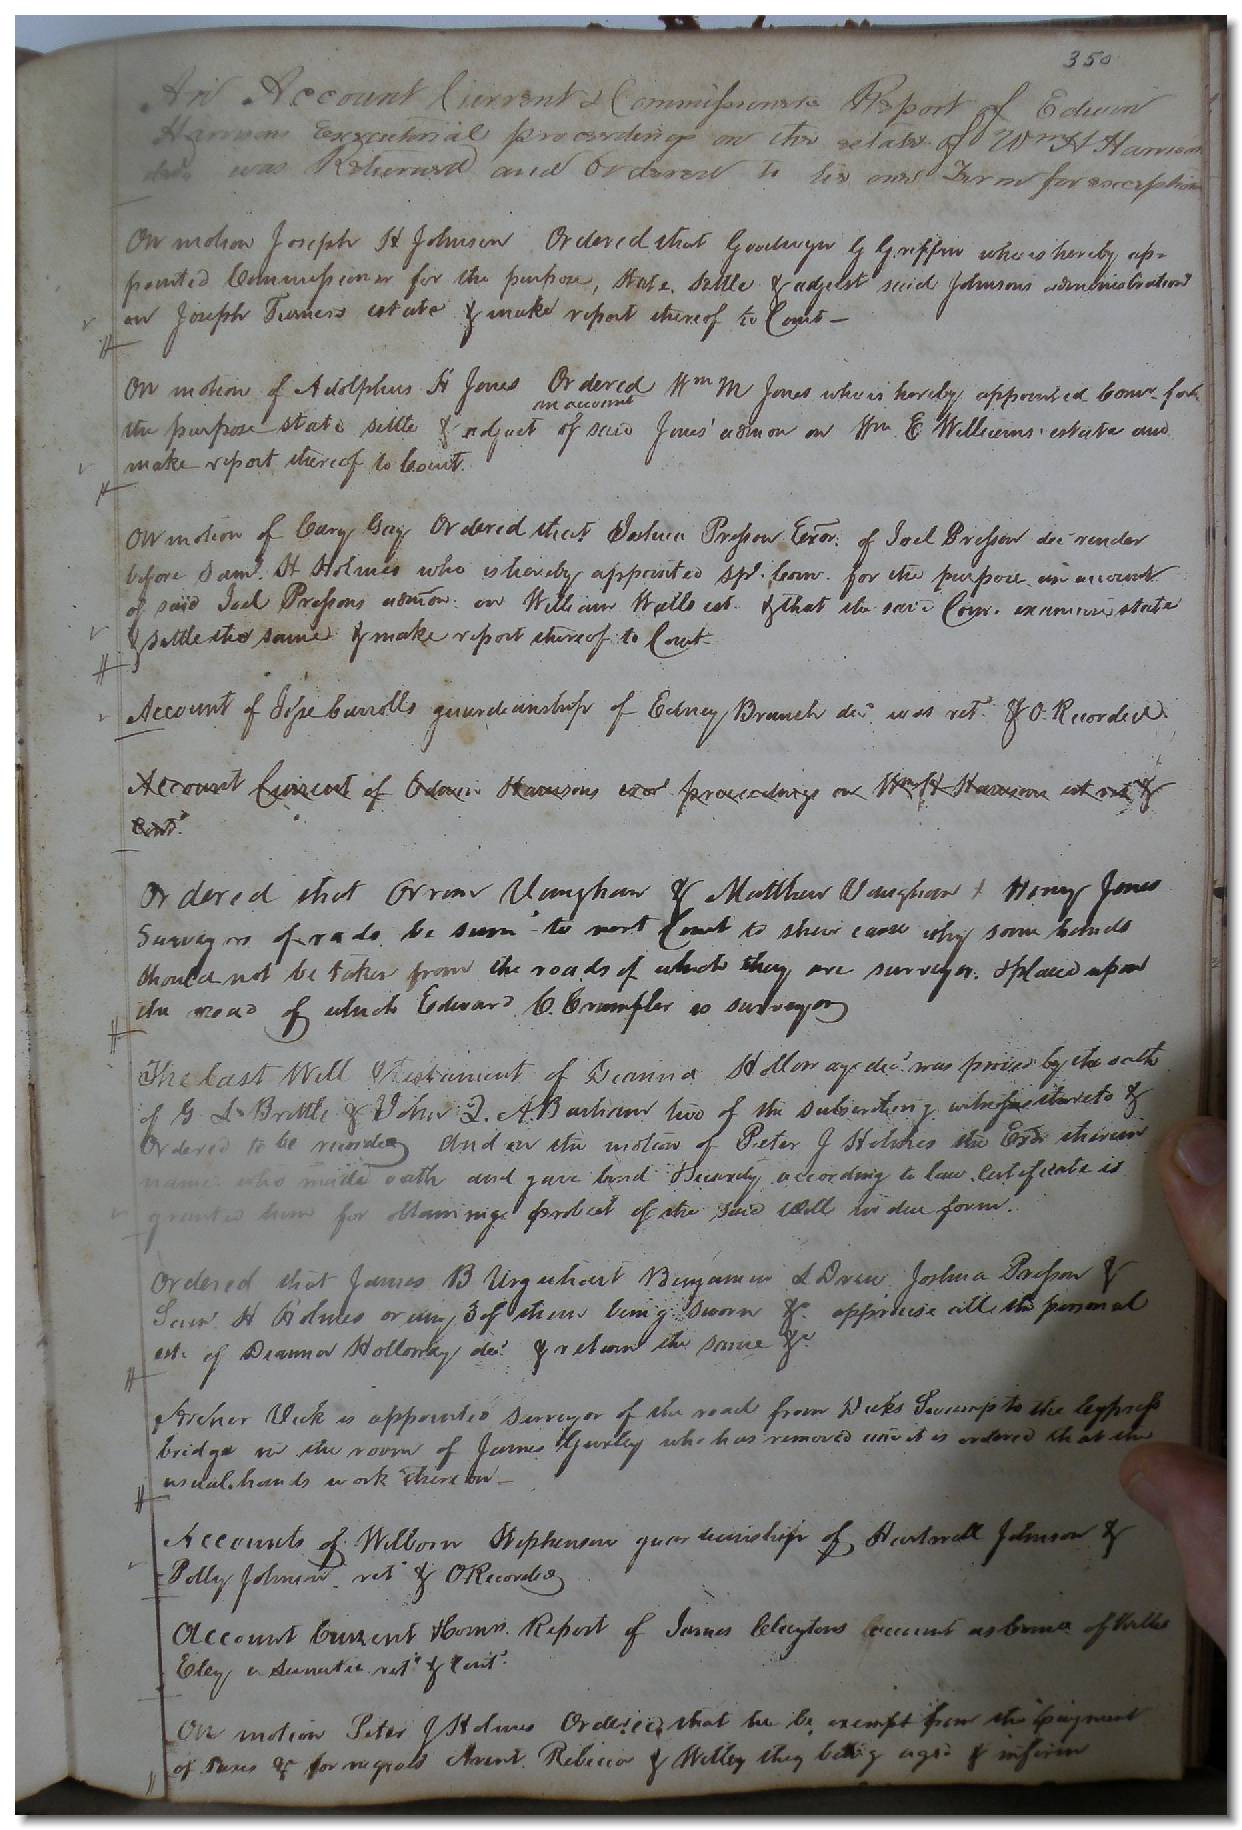 350
An Account Current & Commissioners Report of Edwin
Harrisons Executorial proceedings on the estate of Wm H Harrison
decd was Returned and Ordered to lie one Term for exceptions
On motion Joseph H Johnson Ordered that Goodwyn G Griffin who is hereby ap-
pointed Commissioner for the purpose, State, Settle & adjust said Johnsons administration
on Joseph Turners estate & make report thereof to Court-
On motion of Adolphus H Jones Ordered Wm M Jones who is hereby appointed Comr. for
an account
the purpose state settle & adjust of said Jones' admon on Wm E Williams' estate and
make report thereof to Court.
On motion of Cary Gay Ordered that Joshua Presson Exor. of Joel Presson dec render
before Saml. H Holmes who is hereby appointed Spl. Com. for the purpose an account
of said Joel Pressons admon. on William Walls est. & that the said Comr. examine state
& settle the same & make report thereof to Court-
Account of Carrolls guardianship of Edney Branch decd was retd. & O. Recorded.
Account Current of Edwin Harrisons exor proceedings on Wm H Harrison est retd &
Contd.
Ordered that Orrin Vaughan & Matthew Vaughan + Henry Jones
Surveyors of rads be sum to next Court to shew cause why some hands
should not be taken from the roads of which they are surveyor. & placed upon
the road of which Edward C. Crumpler is surveyor
The last Will & testament of Deanna Holloway decd was proved by the oath
of G L Brittle & John Q. A. Barham two of the subscribing witnesses thereto &
Ordered to be recorded And on the motion of Peter J Holmes the Exor therein
name who made oath and gave bond & security according to law Certificate is
granted him for obtaining probat of the said Will in due form.
Ordered that James B Urquhart Benjamin L Drew Joshua Presson &
Saml H Holmes or any 3 of them being sworn &c. appraise all the personal
est. of Deanna Holloway decd & return the same &c
Archer Vick is appointed surveyor of the road from Vicks Swamp to the Cypress
bridge in the room of James Gurley who has removed and it is ordered that the
usual hands work thereon-
Accounts of Wilborn Stephenson guardianship of Hartwell Johnson &
Polly Johnson retd & O Recorded
Account Current & Comrs. Report of James Claytons account as Comee of Willis
Eley a Lunatic retd & Contd.
On motion Peter J Holmes Ordered that he be exempt from the payment
of taxes &c for negroes Rebecca & Willey they being aged & infirm